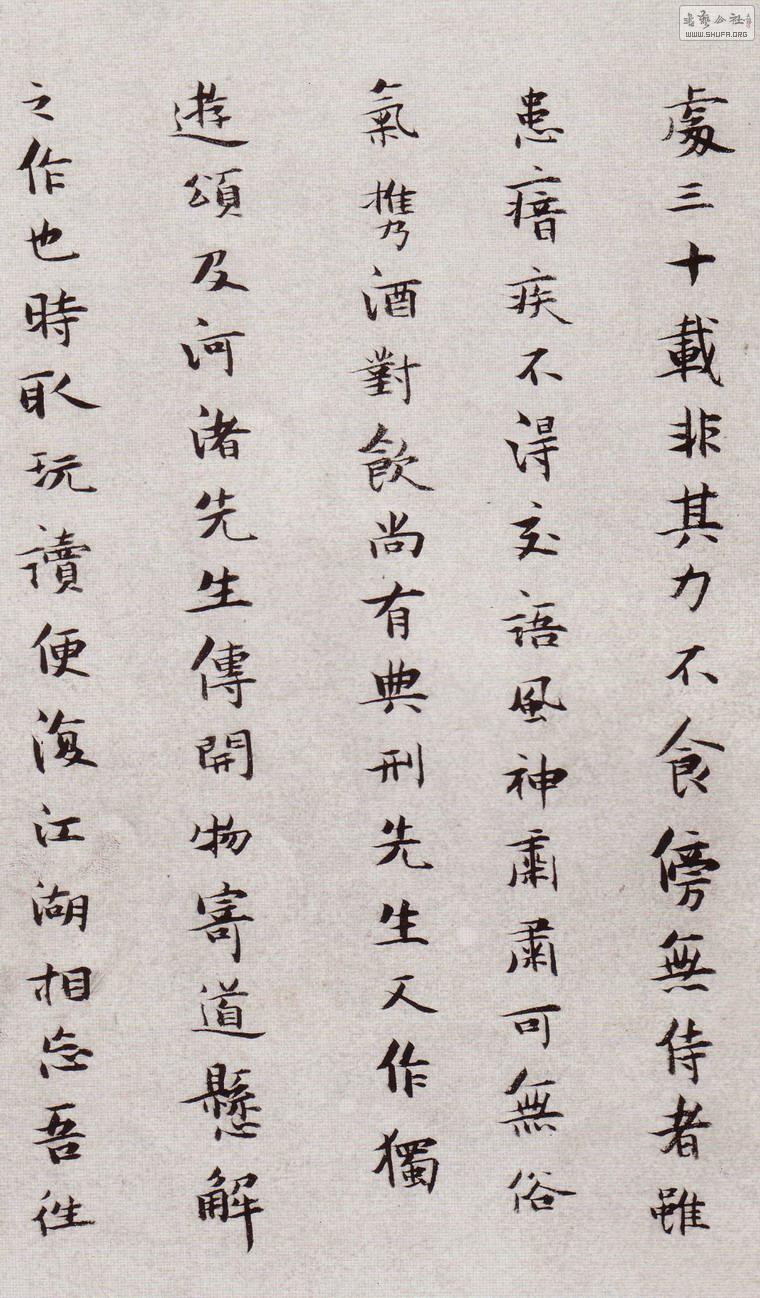 處三十載非其力不食傍無侍者雖
患瘖疾不得交語風神肅肅可無俗
氣攜酒對飲尚有典刑先生又作獨
遊頌及河渚先生傳開物寄道懸解
之作也時取玩讀便復江湖相忘吾往
書藝公社
WWW.SHUFA.ORG